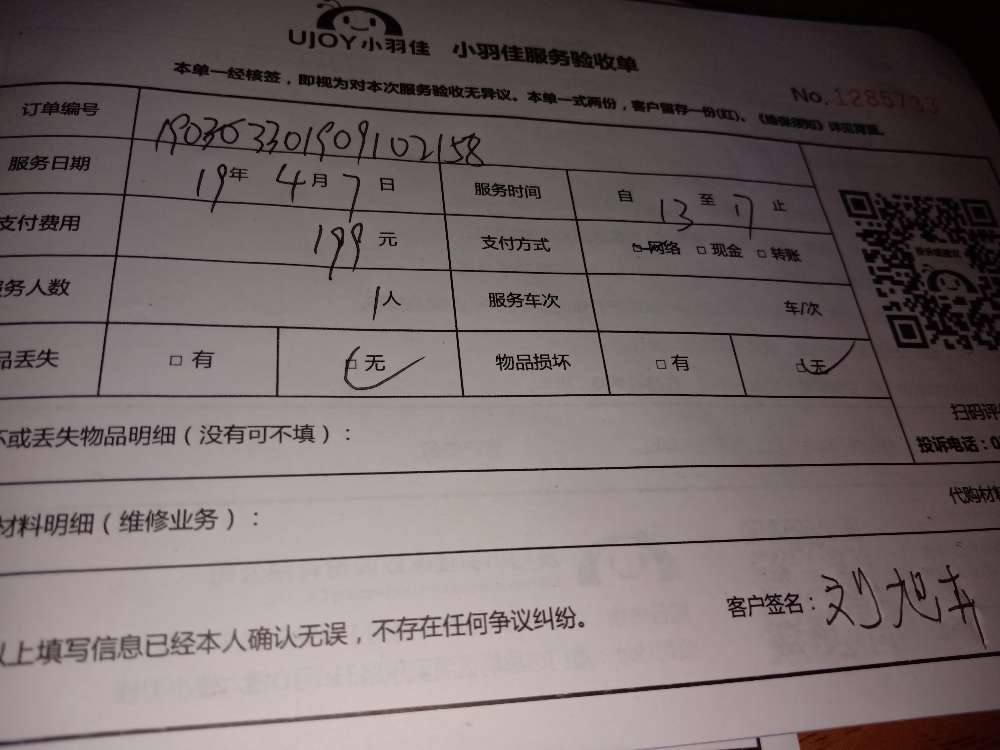 UJOY小羽佳 小羽佳服务验收单
本单一经核签，即视为对本次服务验收无异议。本单一式两份，客户留存一份(红)。《维保须知》详见背面。
No.1285733
订单编号 190303301909102158
服务日期 19年 4月 7日 服务时间 自 13 至 17 止
支付费用 199 元 支付方式 □网络 □现金 □转账
务人数 1人 服务车次 车/次
品丢失 □有 □无 物品损坏 □有 □无
或丢失物品明细（没有可不填）：
扫码评
投诉电话：0
材料明细（维修业务）：
代购材料
以上填写信息已经本人确认无误，不存在任何争议纠纷。
客户签名：刘旭